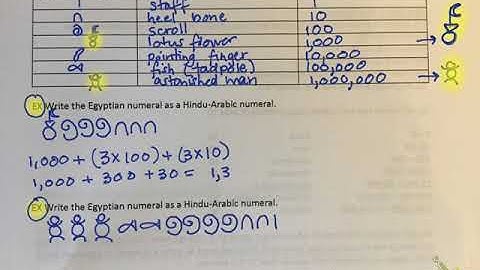 staff 1
heel bone 10
scroll 100
lotus flower 1,000
pointing finger 10,000
fish (tadpole) 100,000
astonished man 1,000,000
EX Write the Egyptian numeral as a Hindu-Arabic numeral.
1,000 + (3×100) + (3×10)
1,000 + 300 + 30 = 1,3
EX Write the Egyptian numeral as a Hindu-Arabic numeral.